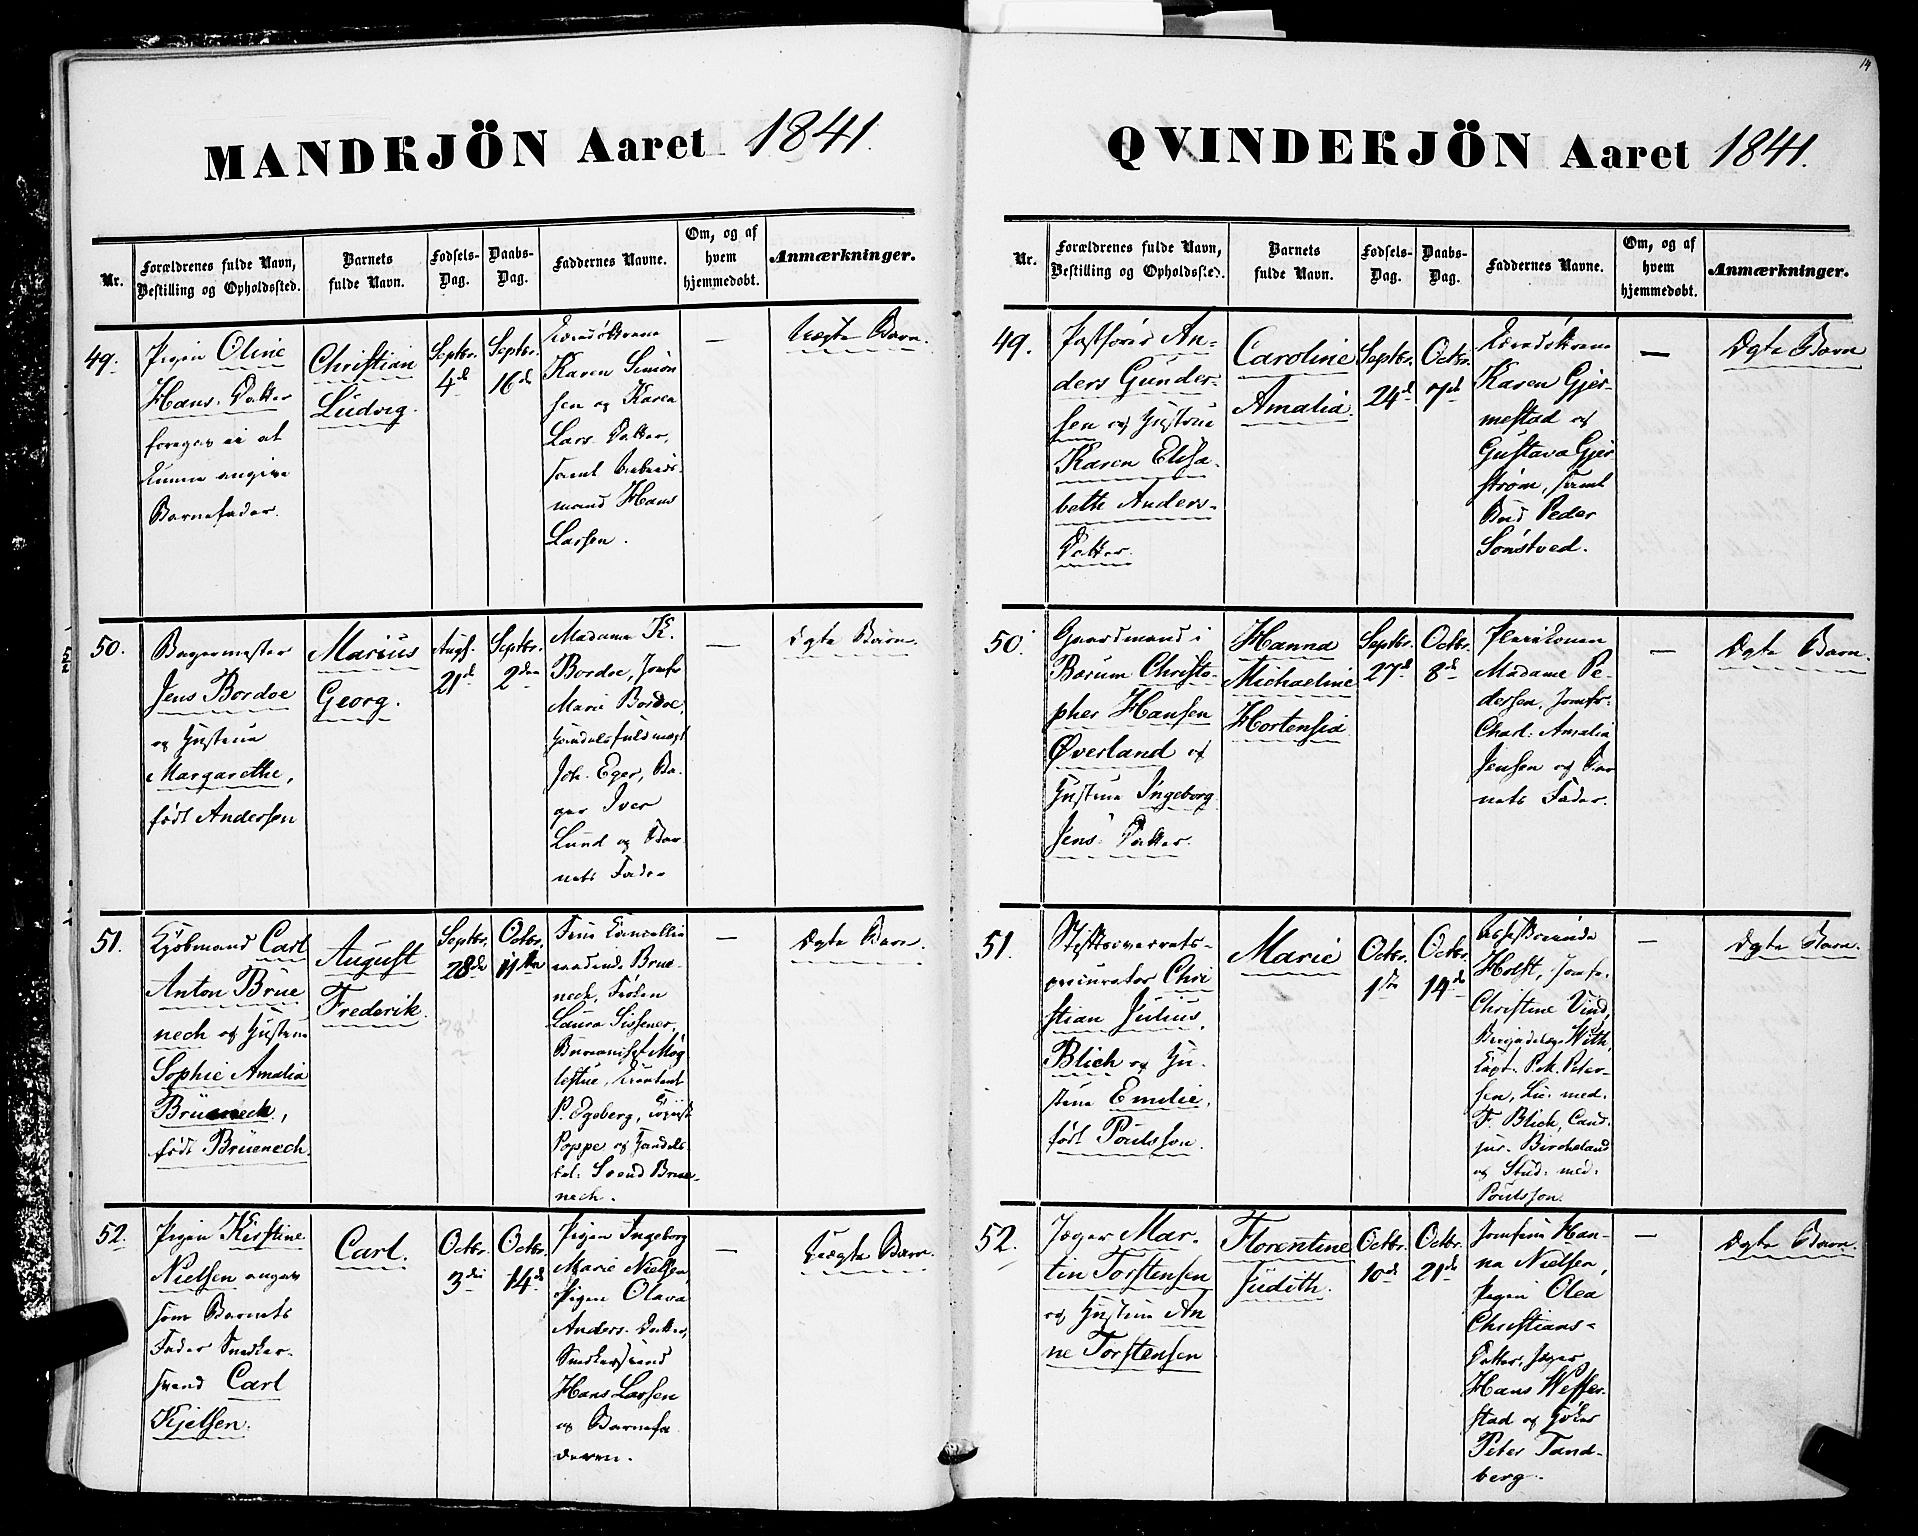 14
MANDKJÖN Aaret 1841.
Nr.
Forældrenes fulde Navn,
Bestilling og Opholdssted.
Barnets
fulde Navn.
Fødsels-
Dag.
Daabs-
Dag.
Faddernes Navne.
Om, og af
hvem
hjemmedøbt.
Anmærkninger.
49.
Pigen Oline
Hans-Datter
foregav ei at
kunne angive
Barnefader.
Christian
Ludvig.
Septbr.
4de
Septbr.
16de
Karen Simon
sen og Karen
Lars-Datter,
samt Arbeids-
mand Hans
Larsen.
—
Uægte Barn.
50.
Bagermester
Jens Bordoe
og Hustrue
Margarethe,
født Andersen
Marius
Georg.
Augs.
21de
Septbr.
2den
Madame K.
Bordoe, Jomfr
Marie Bordoe,
Handelsfuldmægt
Joh. Eger, Ba-
ger Iver
Lund og Bar
nets Fader
—
Ægte Barn.
51.
Kjøbmand Carl
Anton Brüe
nech og Hustrue
Sophie Amalia
Brüenech,
født Brüenech.
August
Frederik.
Septbr.
28de
Octbr.
11te
Brüe-
nech, Frøken
Laura Sissener,
P. Egeberg,
Poppe og Handels
Svend Brüe-
nech.
—
Ægte Barn.
52.
Pigen Kirstine
Nielsen angav
som Barnets
Fader Snedker-
svend Carl
Kjelsen.
Carl.
Octbr.
3die
Octbr.
14de
Pigen Ingeborg
Marie Nielsen,
Pigen Olava
Anders-Datter,
Snedkersvend
Hans Larsen
og Barnefa
deren.
—
Uægte Barn.
QVINDEKJÖN Aaret 1841.
Nr.
Forældrenes fulde Navn,
Bestilling og Opholdssted.
Barnets
fulde Navn.
Fødsels-
Dag.
Daabs-
Dag.
Faddernes Navne.
Om, og af
hvem
hjemmedøbt.
Anmærkninger.
49.
An-
ders Gunder-
sen og Hustrue
Karen Elisa-
beth Anders-
Datter.
Caroline
Amalia.
Septbr.
24de
Octbr.
7de
Karen Gjer
mestad og
Gustava Gjer
strøm, samt
Bud Peder
Sonstved.
—
Ægte Barn
50.
Gaardmand i
Bærum Christo-
pher Hansen
Øverland og
Hustrue Ingeborg
Jens-Datter.
Hanna
Michaeline
Hortensia
Septbr.
27de
Octbr.
8de
Madame Pe-
dersen, Jomfr-
Charl. Amalia
Jensen og Bar
nets Fader.
—
Ægte Barn.
51.
Stiftsoverrets-
procurator Chri
stian Julius
Blich og Hu-
strue Emilie,
født Poulsson.
Marie
Octbr.
1ste
Octbr.
14de
Holst, Jomfr.
Christine Vind,
Capt. Peter-
sen, med.
F. Blich, Cand.
jur. Bircheland
og Stud. med.
Poulsson.
—
Ægte Barn.
52.
Jæger Mar-
tin Torstensen
og Hustrue An
ne Torstensen
Florentine
Judith.
Octbr.
10de
Octbr.
21de
Jomfrue Han-
na Nielsen,
Pigen Olea
Christians-
Datter, Jæger
Hans Wesser
stad og
Peter Tand-
berg.
—
Ægte Barn.